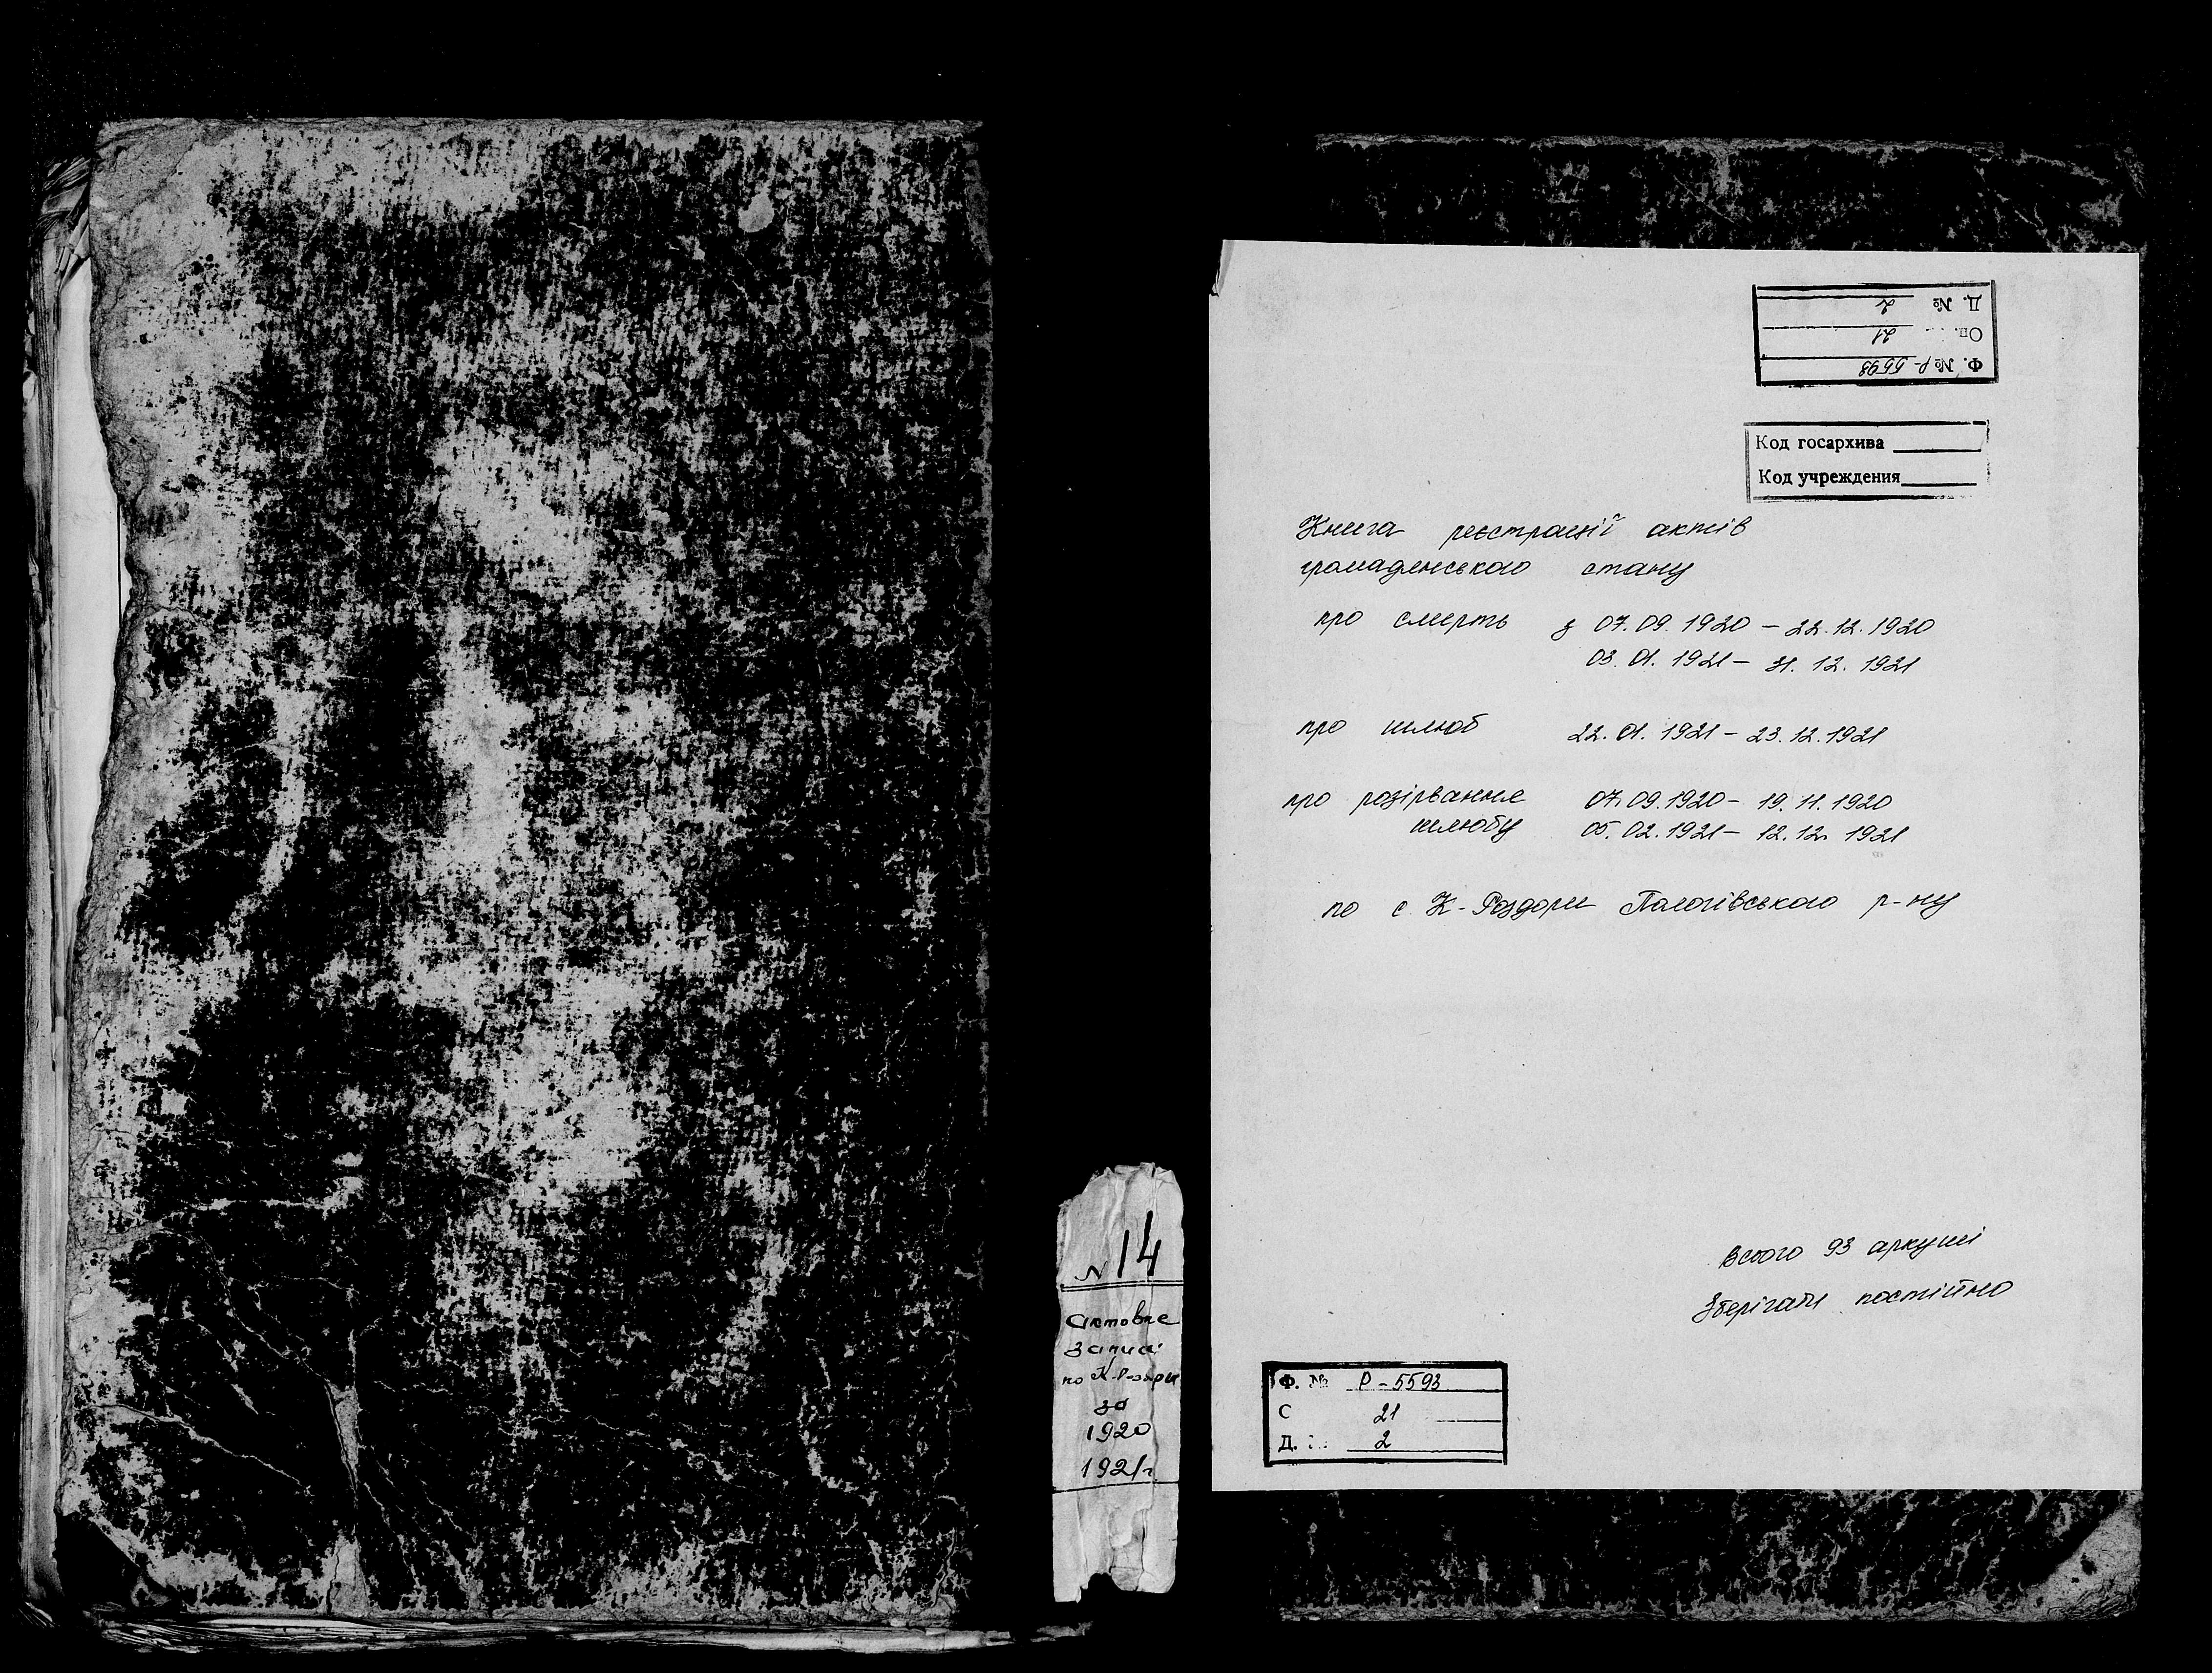 Д. № 2
Оп. 21
Ф. № Р-5593
Код госархива
Код учреждения
Книга реєстрації актів
громадянського стану
про смерть з 07.09.1920 – 22.12.1920
03.01.1921 – 31.12.1921
про шлюб 22.01.1921 – 23.12.1921
про розірвання 07.09.1920 – 19.11.1920
шлюбу 05.02.1921 – 12.12.1921
по с К-Роздори Пологівського р-ну
Всього 93 аркуші
Зберігати постійно
Ф. № Р-5593
С 21
Д. 2
№ 14
Актовые
записи
по К-Р-здоры
за
1920
1921г.